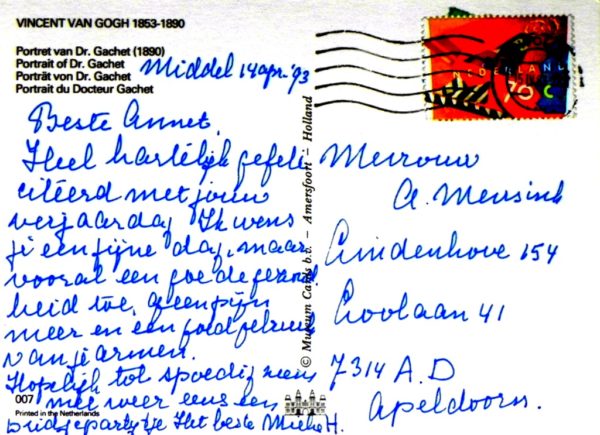 VINCENT VAN GOGH 1853-1890
Portret van Dr. Gachet (1890)
Portrait of Dr. Gachet
Porträt von Dr. Gachet
Portrait du Docteur Gachet
Middel 14 apr. '93
Beste Annet,
Heel hartelijk gefeli
citeerd met jouw
verjaardag Ik wens
je een fijne dag, maar
vooral een goede gezond
heid toe, geen pijn
meer en een
van je armen.
Hopelijk tot spoedig eens
mee weer eens een
bridgepartijtje Het beste Mieke H.
007
Printed in the Netherlands
© Museum Cards b.v. – Amersfoort – Holland
NEDERLAND
70 c
Mevrouw
A. Mensink
Lindenhove 154
Loolaan 41
7314 A.D
Apeldoorn.